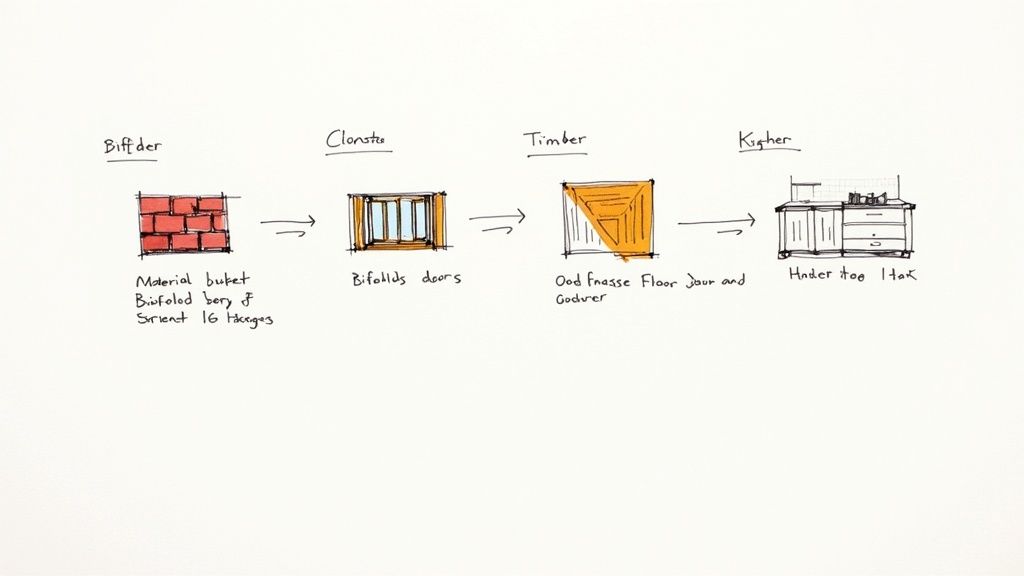 Biffder
Clonste
Timber
Kigher
Material buket
Bisfolod bery of
16
Bifolds doors
Ood Fnasse Floor Jour and
Goduer
Hnder itog Itak